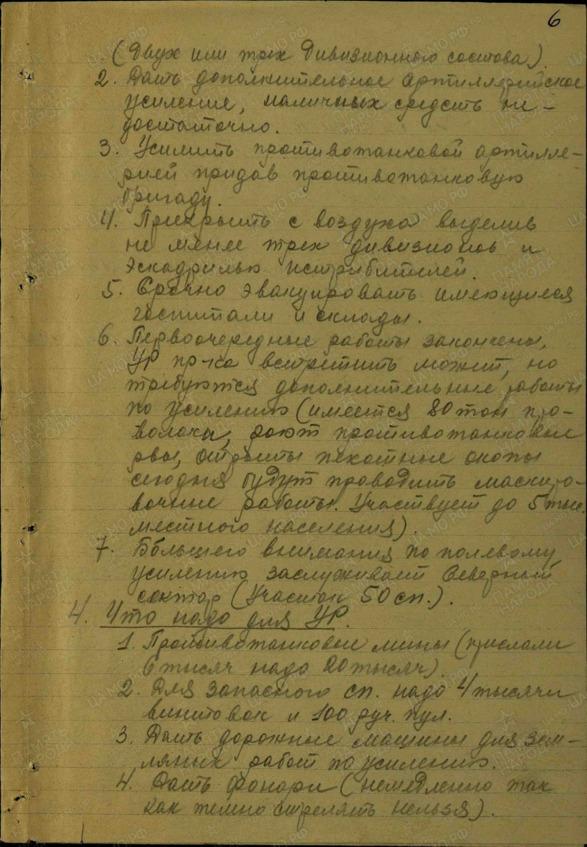 6
(Двух или трех Дивизионного состава).
2. Дать дополнительное артиллерийское
усиление, наличных средств не-
достаточно.
3. Усилить противотанковой артилле-
рией придав противотанковую
бригаду.
4. Прикрыть с воздуха выделив
не менее трех дивизионов и
эскадрилью истребителей.
5. Срочно эвакуировать имеющиеся
госпитали и склады.
6. Первоочередные работы закончены,
УР пр-ка встретить может, но
требуются дополнительные работы
по усилению (имеется 80 тон про-
волоки, роют противотанковые
рвы, открыты пехотные окопы
сегодня будут проводить маскиро-
вочные работы. Участвует до 5 тыс.
местного населения).
7. Большего внимания по полевому
усилению заслуживает Северный
сектор (Участок 50 сп.).
4. Что надо для УР.
1. Противотанковые мины (прислали
6 тысяч надо 20 тысяч).
2. Для запасного сп. надо 4 тысячи
винтовок и 100 руч. пул.
3. Дать дорожные машины для зем-
ляных работ по усилению.
4. Дать фонари (немедленно так
как темно стрелять нельзя).